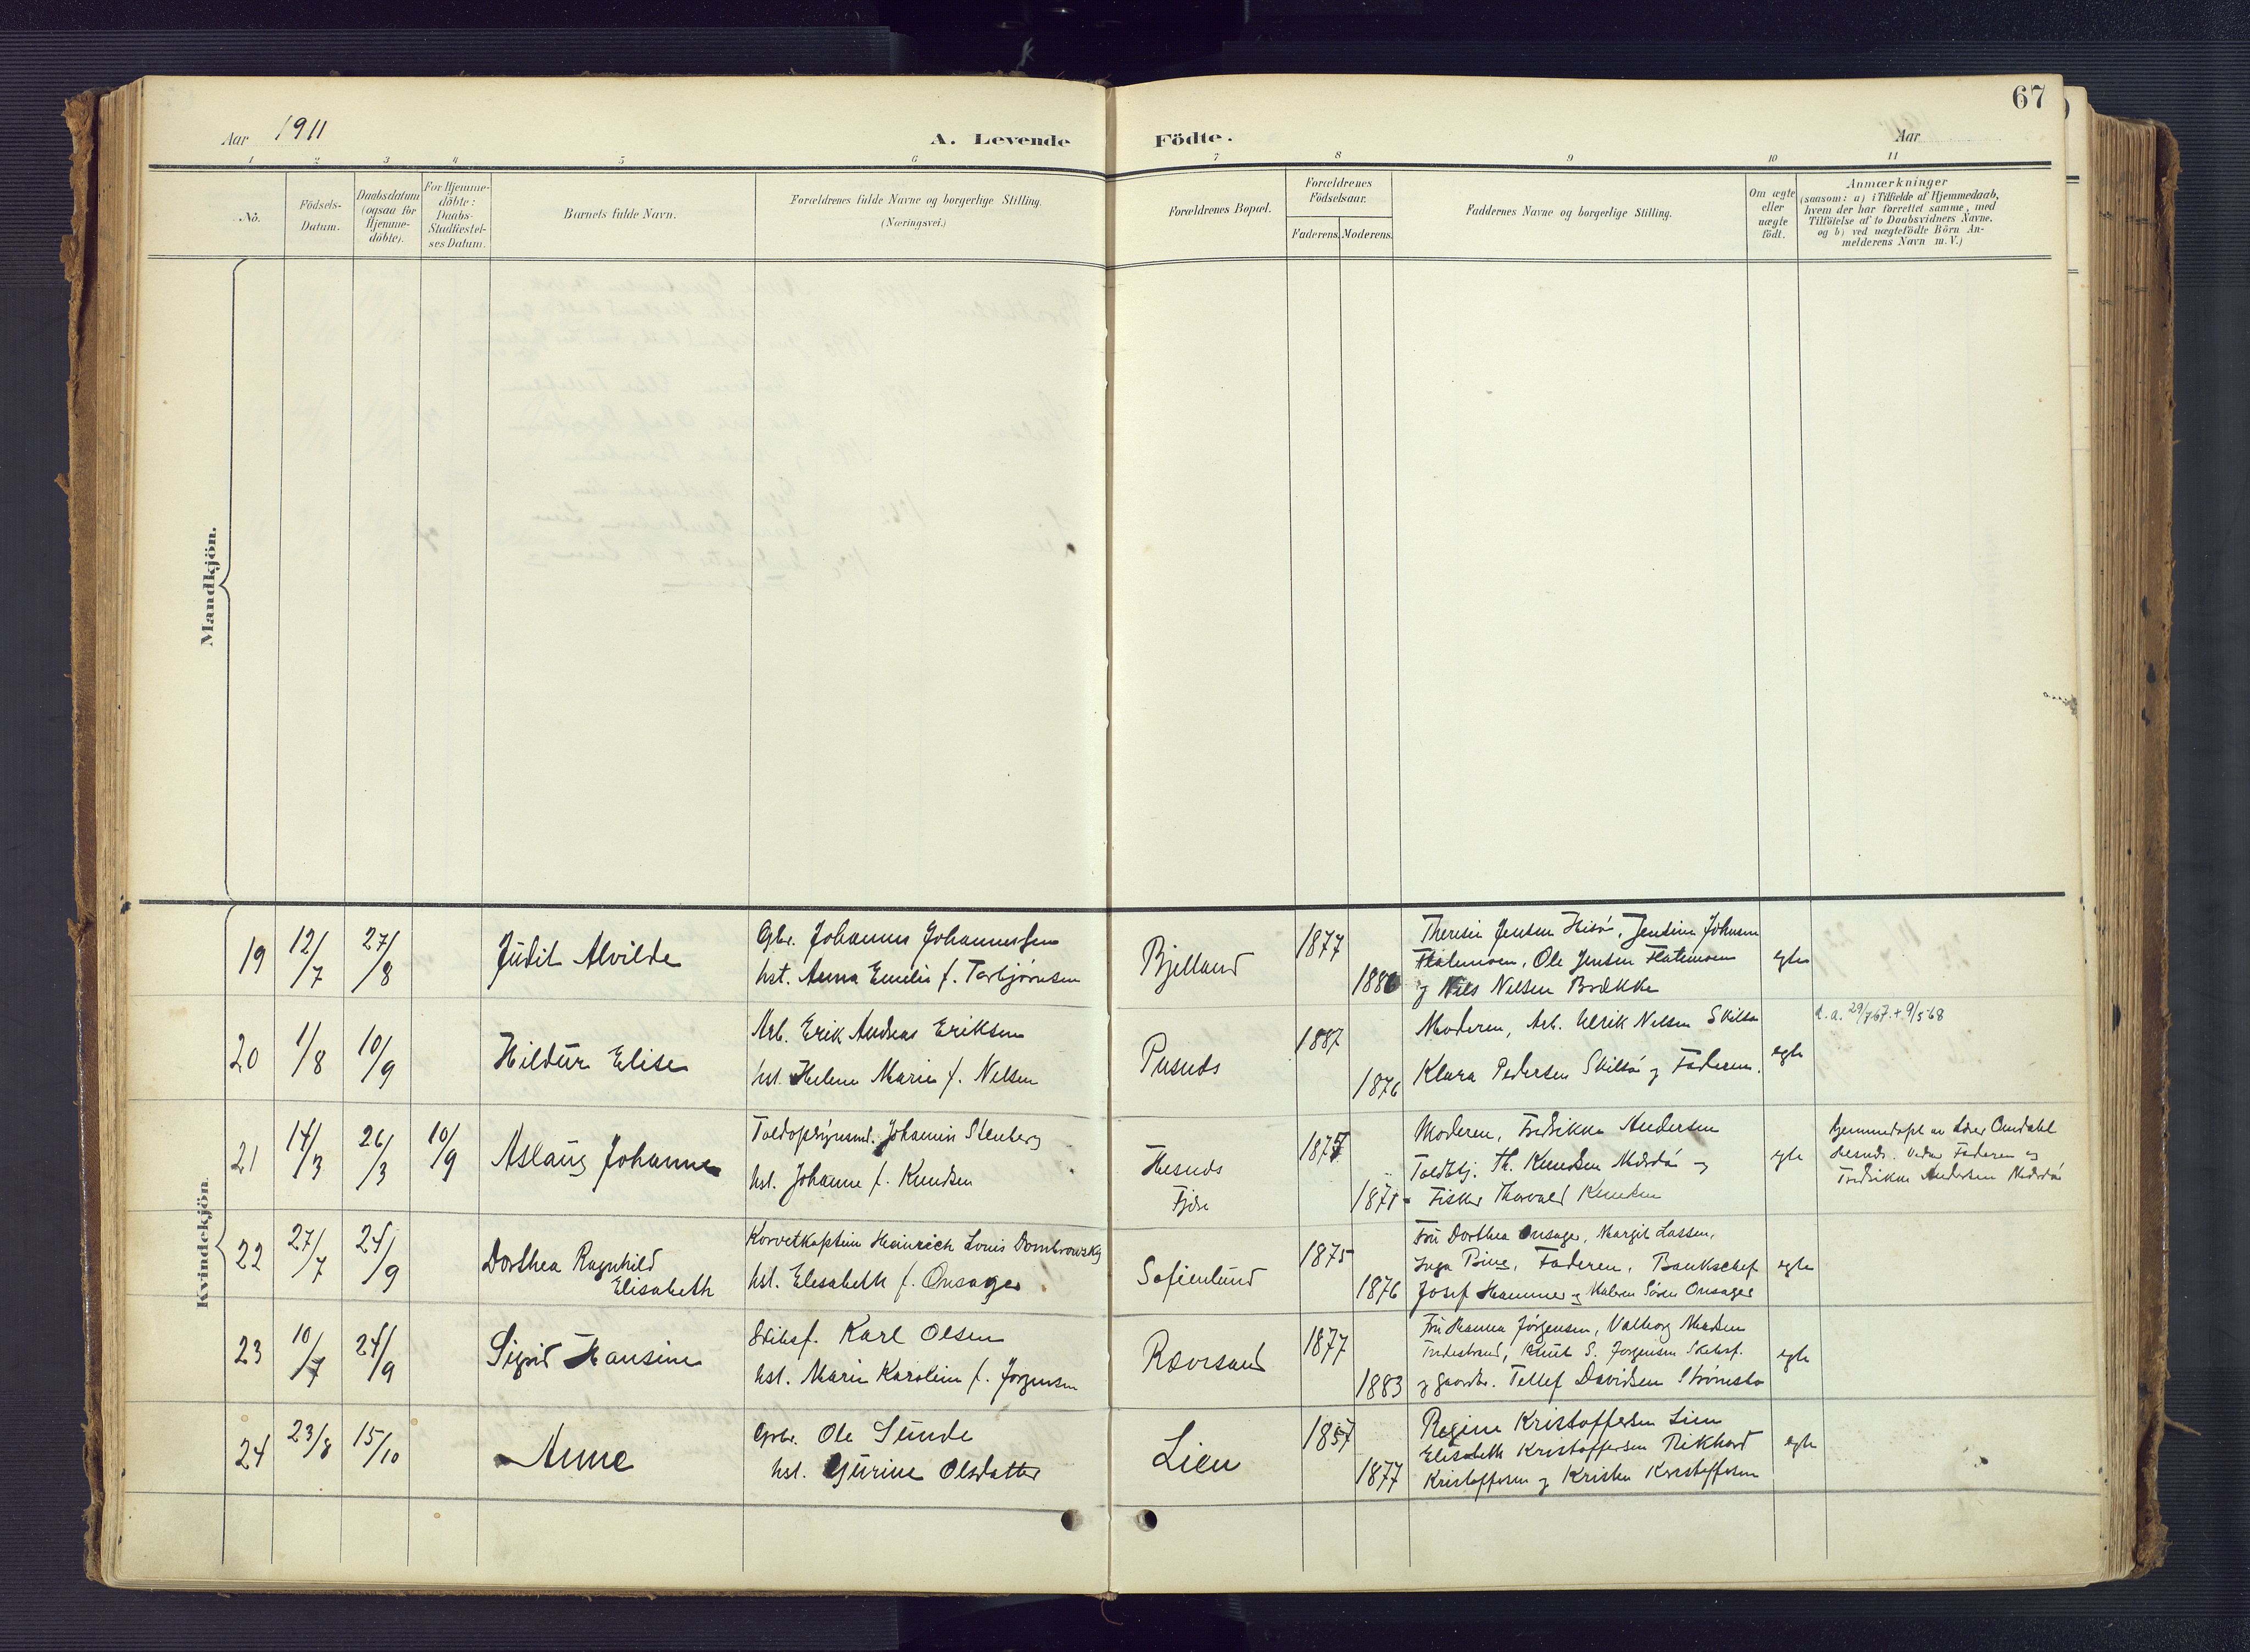 67
Aar 1911
A. Levende
Födte.
Aar
1 2 3 4 5 6 7 8 9 10 11
No.
Födsels-
Datum.
Daabsdatum
(ogsaa for
Hjemme-
döbte).
For Hjemme-
döbte:
Daabs-
Stadfæstel-
ses Datum.
Barnets fulde Navn.
Forældrenes fulde Navne og borgerlige Stilling.
(Næringsvei.)
Forældrenes Bopæl.
Forældrenes
Födselsaar.
Faderens. Moderens.
Faddernes Navne og borgerlige Stilling.
Om ægte
eller
uægte
födt.
Anmærkninger
(saasom: a) i Tilfælde af Hjemmedaab,
hvem der har forrettet samme, med
Tilföielse af to Daabsvidners Navne.
og b) ved uægtefödte Börn An-
melderens Navn m. V.)
Mandkjön.
Kvindekjön.
19 12/7 27/8
Judit Alvilde
Gbr. Johannes Johannessen
hst. Anna Emilie f. Torbjørnsen
Bjelland
1877
1886
Theresie Jensen Hisø, Jensine Johnsen
Flatemoen, Ole Jensen Flatemoen
og Nils Nelsen Brække
egte
20 1/8 10/9
Hildur Elise
Arb. Erik Andreas Eriksen
hst. Helene Marie f. Nelsen
Pusnes
1887
1876
Moderen, Arb. Ulrik Nelsen Skilsø
Klara Pedersen Skilsø og Faderen.
egte
d. a. 29/7 67. + 9/5 68
21 14/3 26/3 10/9
Aslaug Johanne
Toldopsynsmd. Johannes Stenberg
hst. Johanne f. Knudsen
Hesnes
Fjære
1875
1871
Moderen, Fredrikke Andersen
Toldbtj. Th. Knudsen Mærdø og
Fisker Thorvald Knudsen
egte
hjemmedøpt av Lærer Omdahl
Hesnes. Vidner Faderen og
Fredrikke Andersen Mærdø
22 27/7 24/9
Dorthea Ragnhild
Elisabeth
Korvetkaptein Heinrich Louis Dombrowsky
hst. Elesabeth f. Onsager
Sofienlund
1875
1876
Fru Dorthea Onsager, Margit Lassen,
Inga Pine, Faderen, Bankschef
Josef Hammer og Maleren Søren Onsager
egte
23 10/7 24/9
Sigrid Hansine
Skibsf. Karl Olsen
hst. Marie Karoline f. Jørgensen
Rævesand
1877
1883
Fru Hanna Jørgensen, Valborg Madsen
Tvedestrand, Knut S. Jørgensen Skibsf.
og Gaardbr. Tellef Davidsen Strømsbo
egte
24 23/8 15/10
Anne
Gbr. Ole Sunde
hst. Gurine Olsdatter
Lien
1857
1877
Regine Kristoffersen Lien
Elisabeth Kristoffersen Rikhard
Kristoffersen og Kristen Kristoffersen
egte